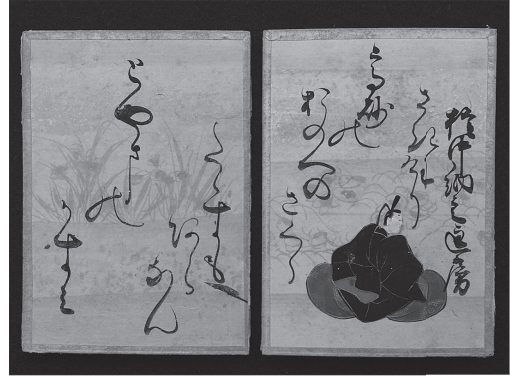 権中納言匡房
高砂の
おのへの
さくら
さきにけり
とやまの
かすみ
たゝすも
あらなん